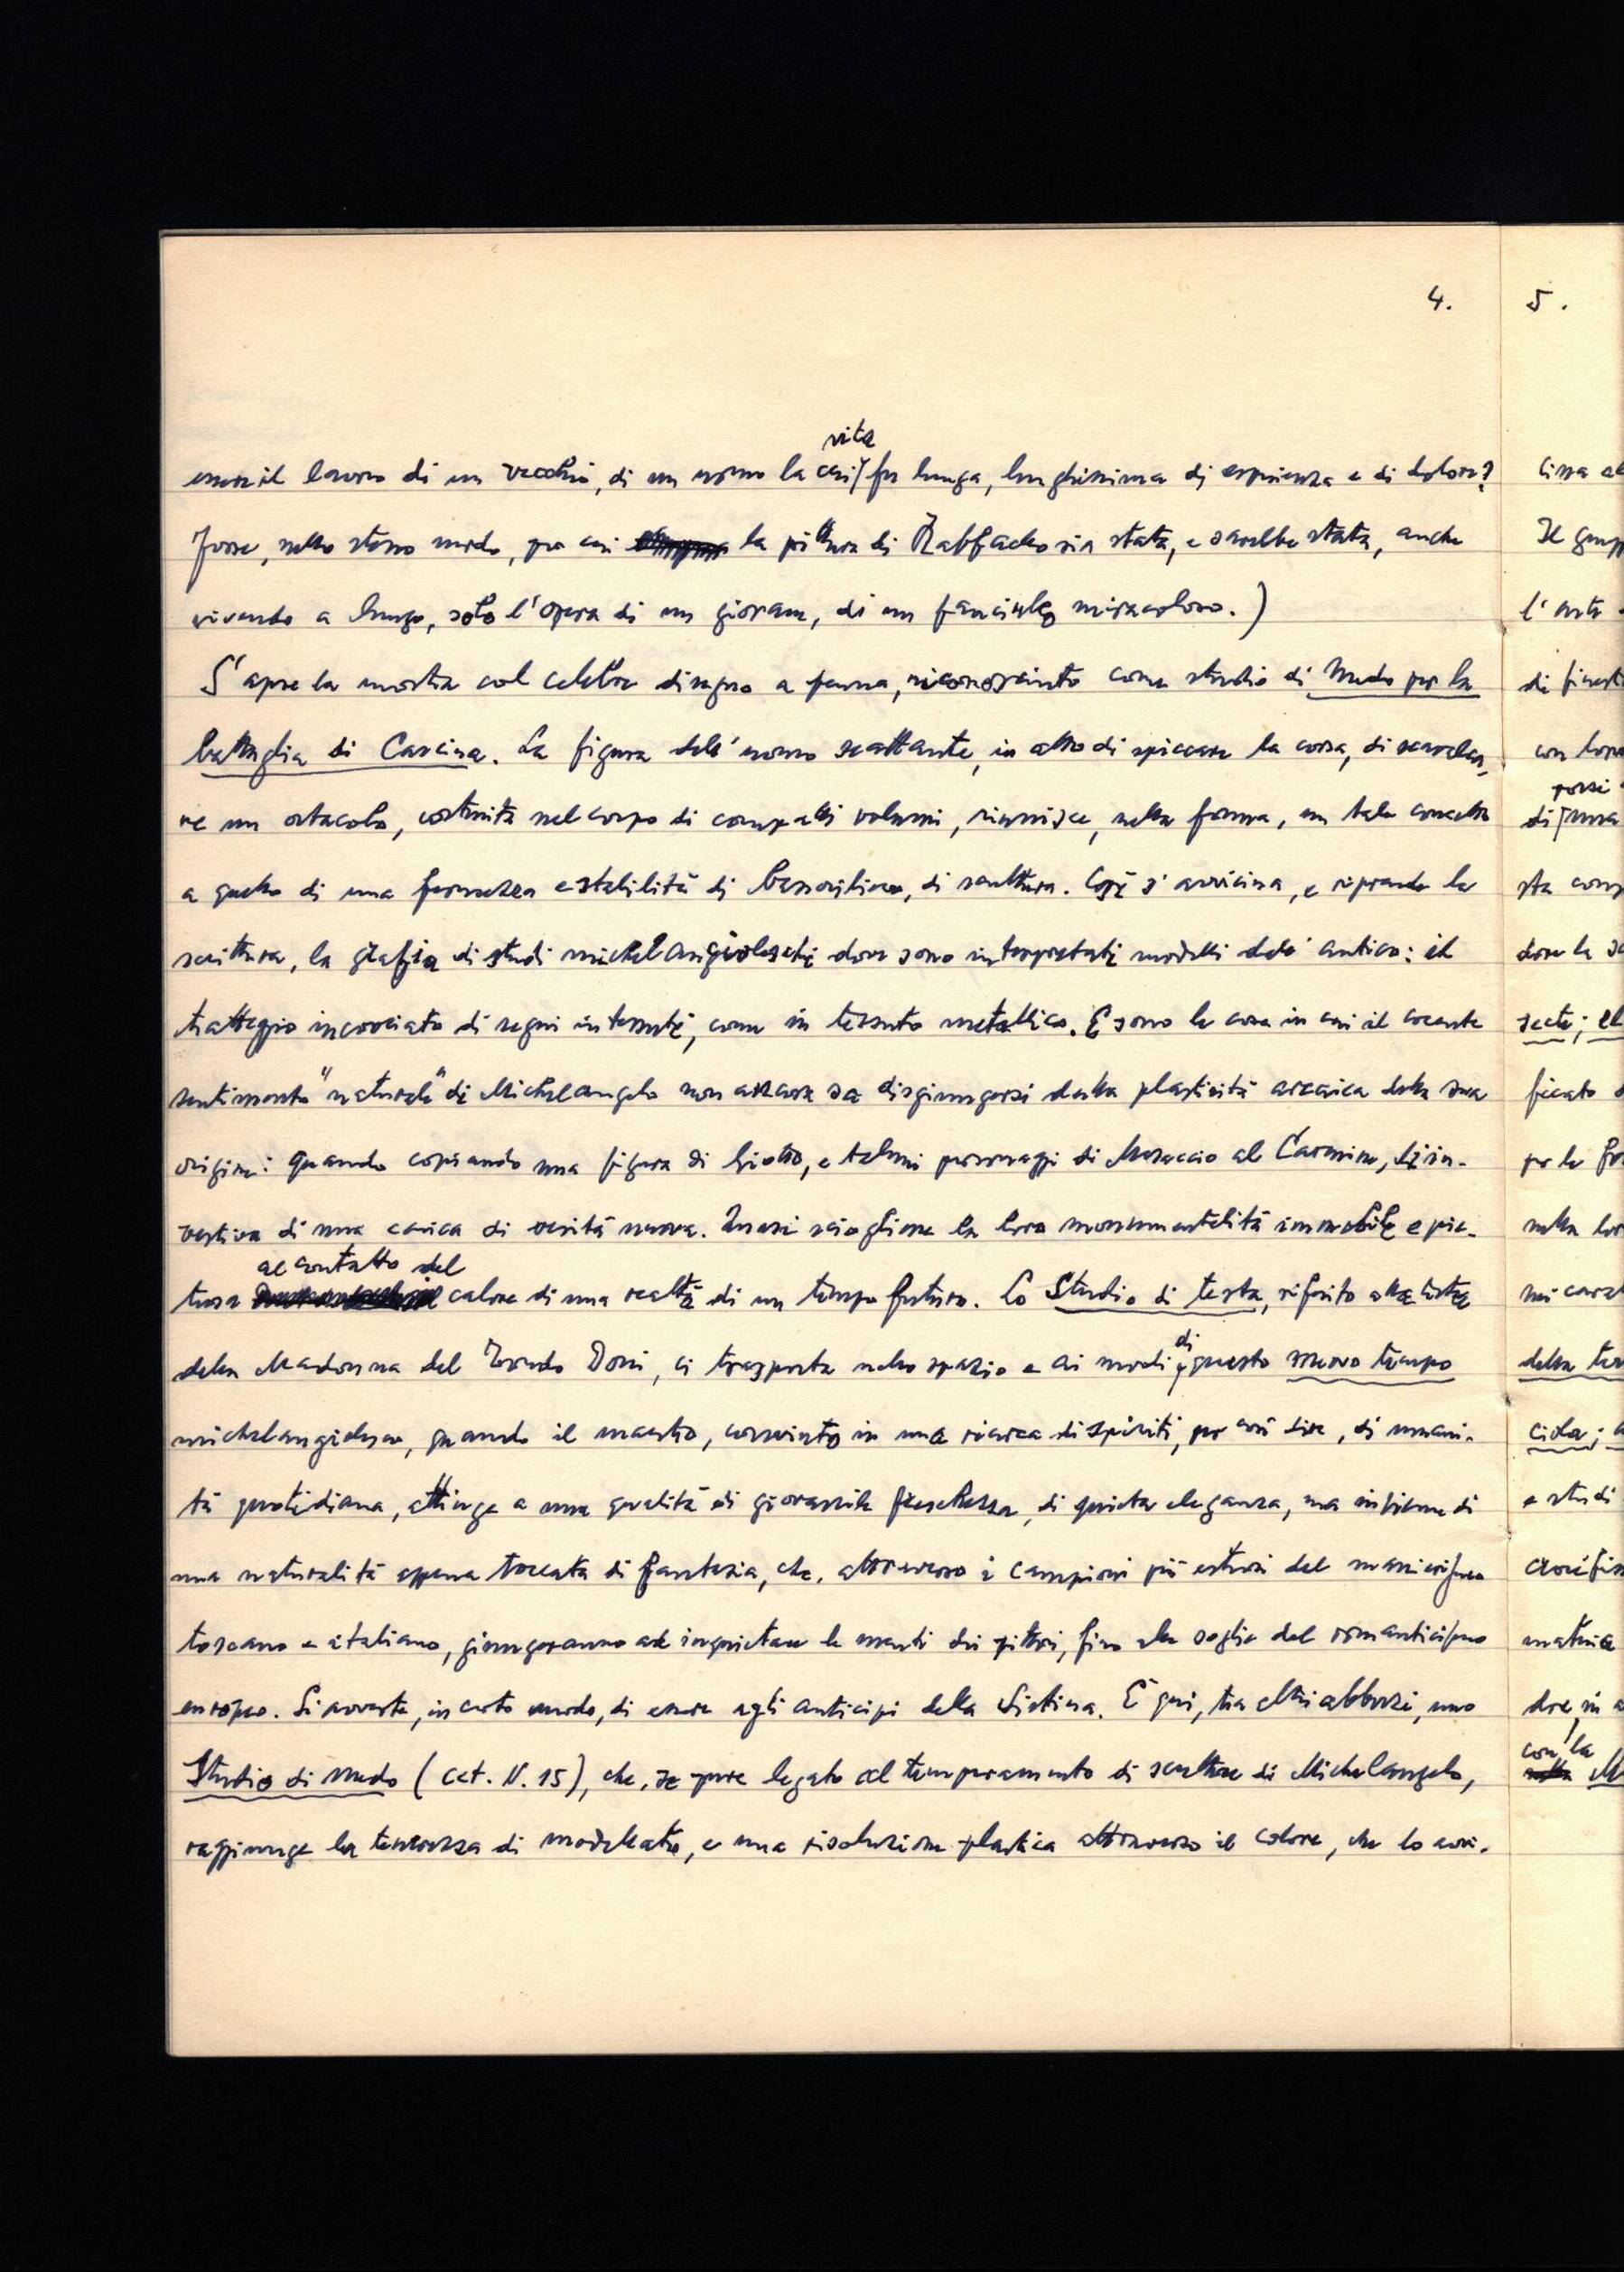 4.
vita
essere il lavoro di un vecchio, di un uomo la cui fu lunga, lunghissima di esperienza e di dolore?
Forse, nello stesso modo, per cui la pittura di Raffaello sia stata, e sarebbe stata, anche
vivendo a lungo, solo l'opera di un giovane, di un fanciullo miracoloso.)
S'apre la mostra col celebre disegno a penna, riconosciuto come studio di Nudo per la
battaglia di Cascina. La figura dell'uomo scattante, in atto di spiccare la corsa, di scavalca-
re un ostacolo, costruita nel corpo di compatti volumi, riunisce, nella forma, un tale concetto
a quello di una fermezza e stabilità di bassorilievo, di scultura. Così s'avvicina, e riprende la
scrittura, la grafia di studi michelangioleschi dove sono interpretati modelli dell'antico: il
tratteggio incrociato di segni intessuti, come in tessuto metallico. E sono le cose in cui il cocente
sentimento "naturale" di Michelangelo non ancora sa disgiungersi dalla plasticità arcaica della sua
origine: quando copiando una figura di Giotto, e taluni personaggi di Masaccio al Carmine, li in-
vestiva di una carica di verità nuova. Quasi sciogliesse la loro monumentalità immobile e pie-
al contatto del
trosa calore di una realtà di un tempo futuro. Lo Studio di testa, riferito alla testa
della Madonna del Tondo Doni, ci trasporta nello spazio e ai modi di questo nuovo tempo
michelangiolesco, quando il maestro, convinto in una ricerca di spiriti, per così dire, di umani-
tà quotidiana, attinge a una qualità di giovanile freschezza, di quieta eleganza, ma insieme di
una naturalità appena toccata di fantasia, che, attraverso i campioni più estrosi del manierismo
toscano e italiano, giungeranno ad inquietare le menti dei pittori, fino alla soglia del romanticismo
europeo. Si avverte, in certo modo, di essere agli anticipi della Sistina. E qui, tra altri abbozzi, uno
Studio di nudo (cat. N. 15), che, se pure legato al temperamento di scultore di Michelangelo,
raggiunge la tenerezza di modellato, e una risoluzione plastica attraverso il colore, che lo avvi-
5.
lissa al
Il grupp
l'arte
di finest
con loro
possi
di
sta comp
dove la
secte; el
ficato
per la
nella lor
nei carat
della ter
cida;
e studi
crocifiss
matrice
dre, in a
con la